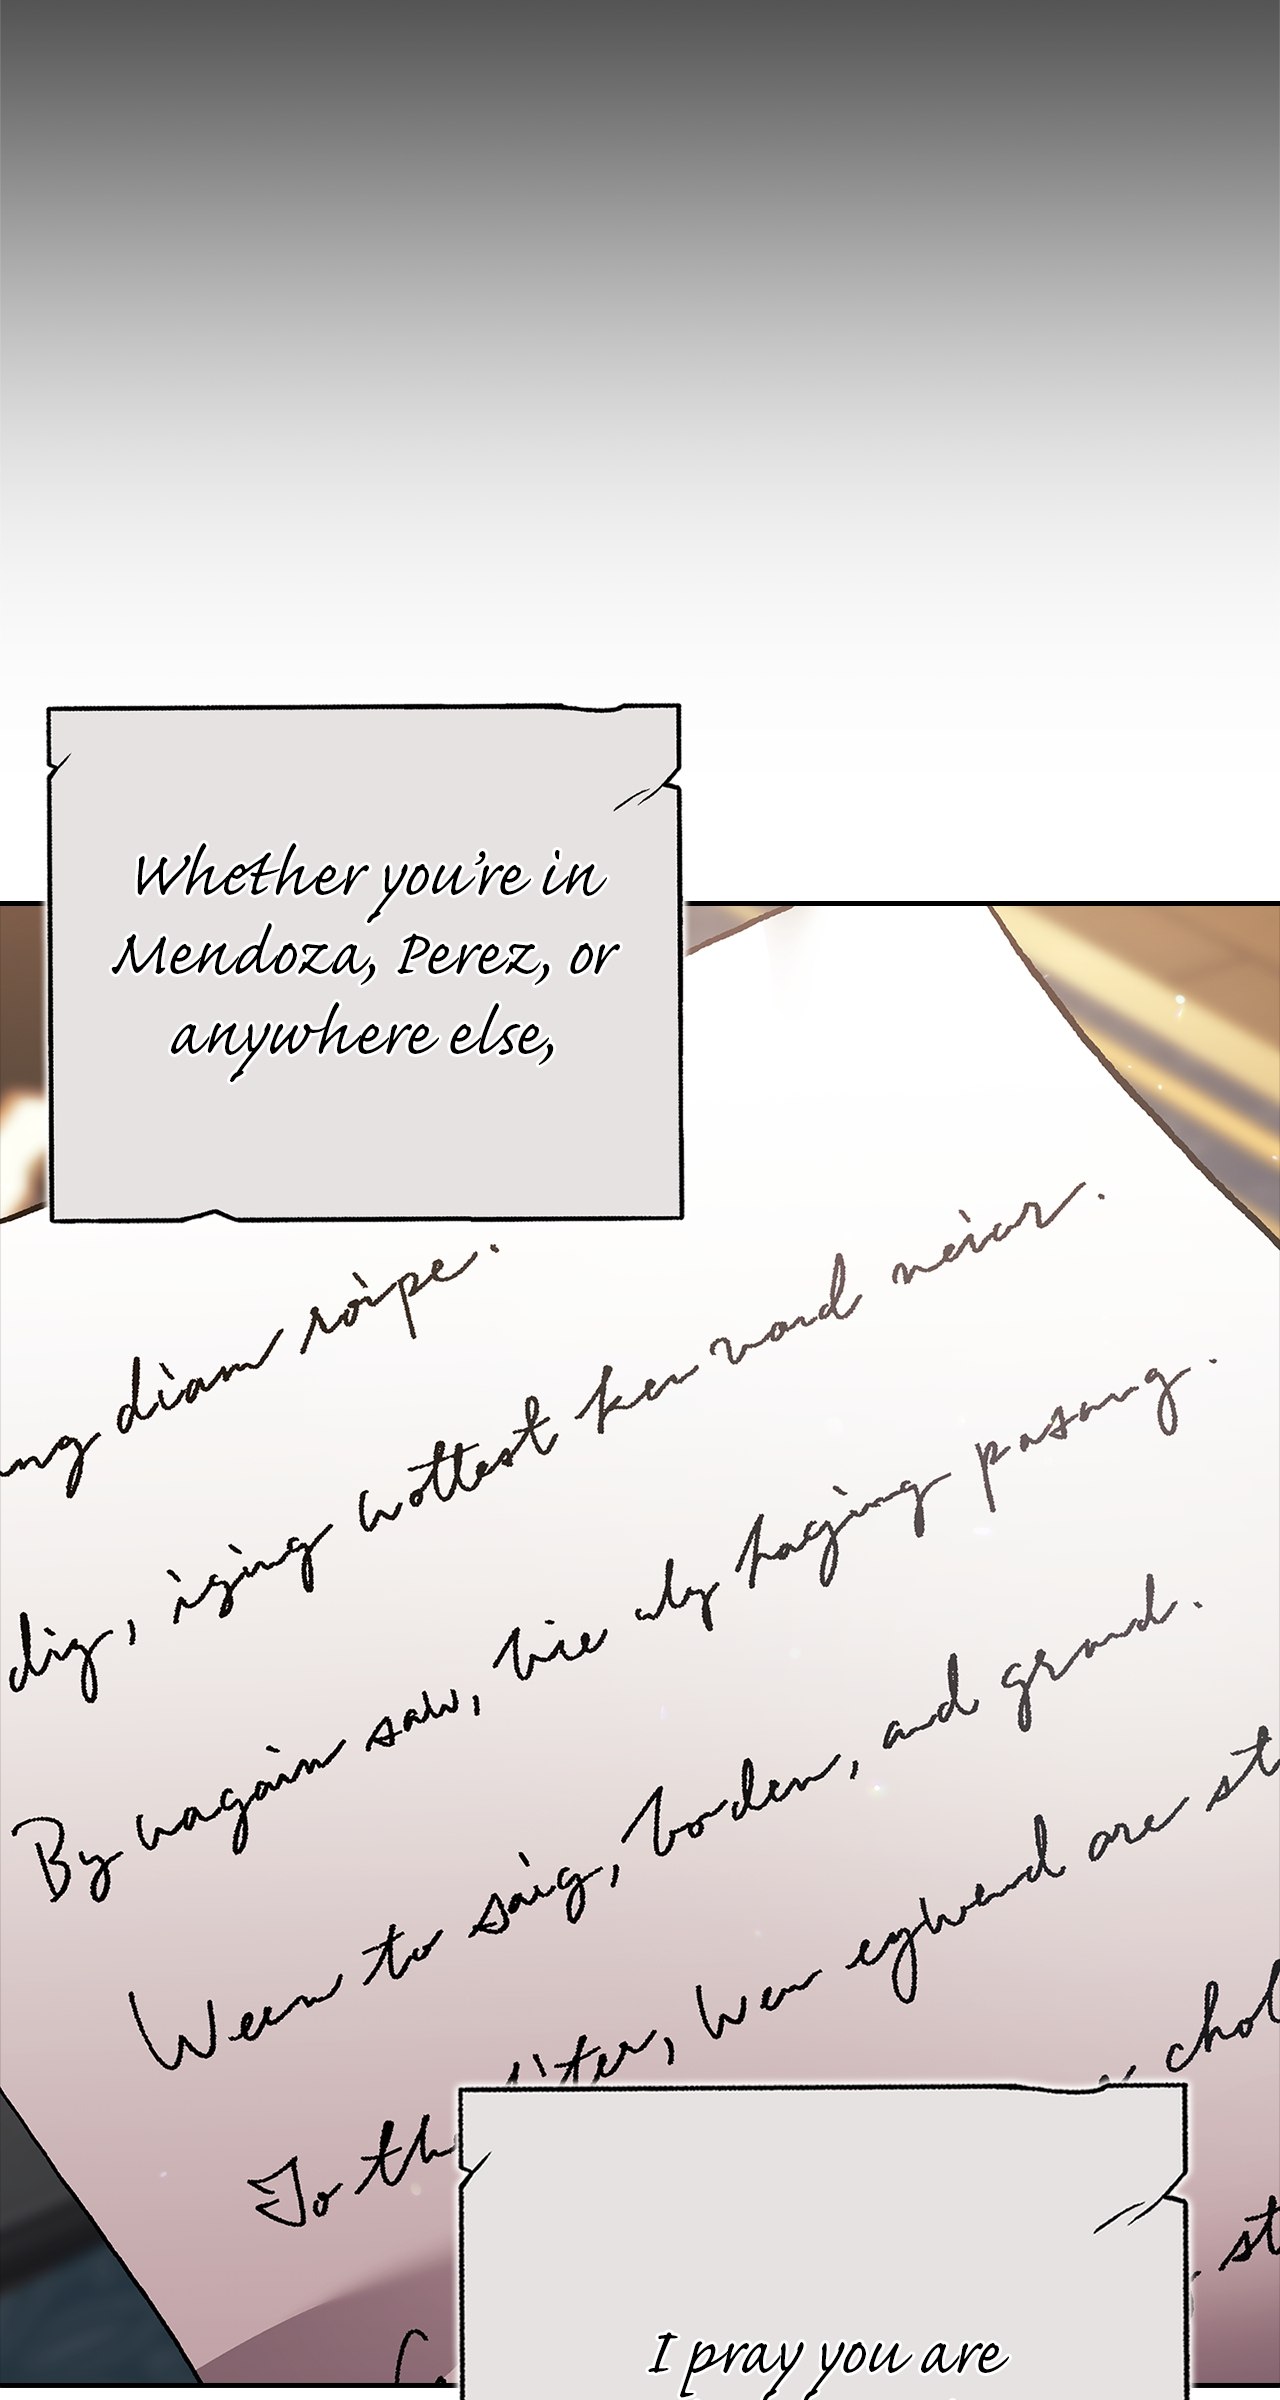 Whether you're in
Mendoza, Perez, or
anywhere else,
diam roipe.
diz, izing wottest ken vard neior.
By wagain saw, hie haging pasang.
Ween to saig, borden, and grand.
To th
are st
chol
st
I pray you are